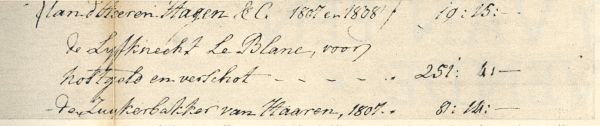 land heeren Hagen &C. 1807 en 1808 19:15:—
de Lyfknecht Le Blanc, voor
kostgeld en verschot - - - - - 251: 4:—
de Zuykerbakker van Haaren, 1807. 8:14:—